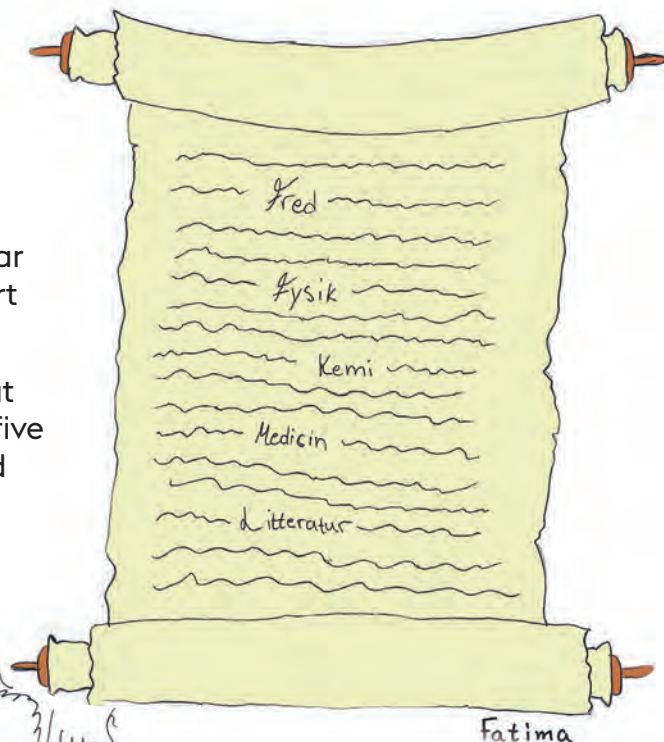 ar
rt
at
five
d
Fred
Fysik
Kemi
Medicin
Litteratur
Fatima